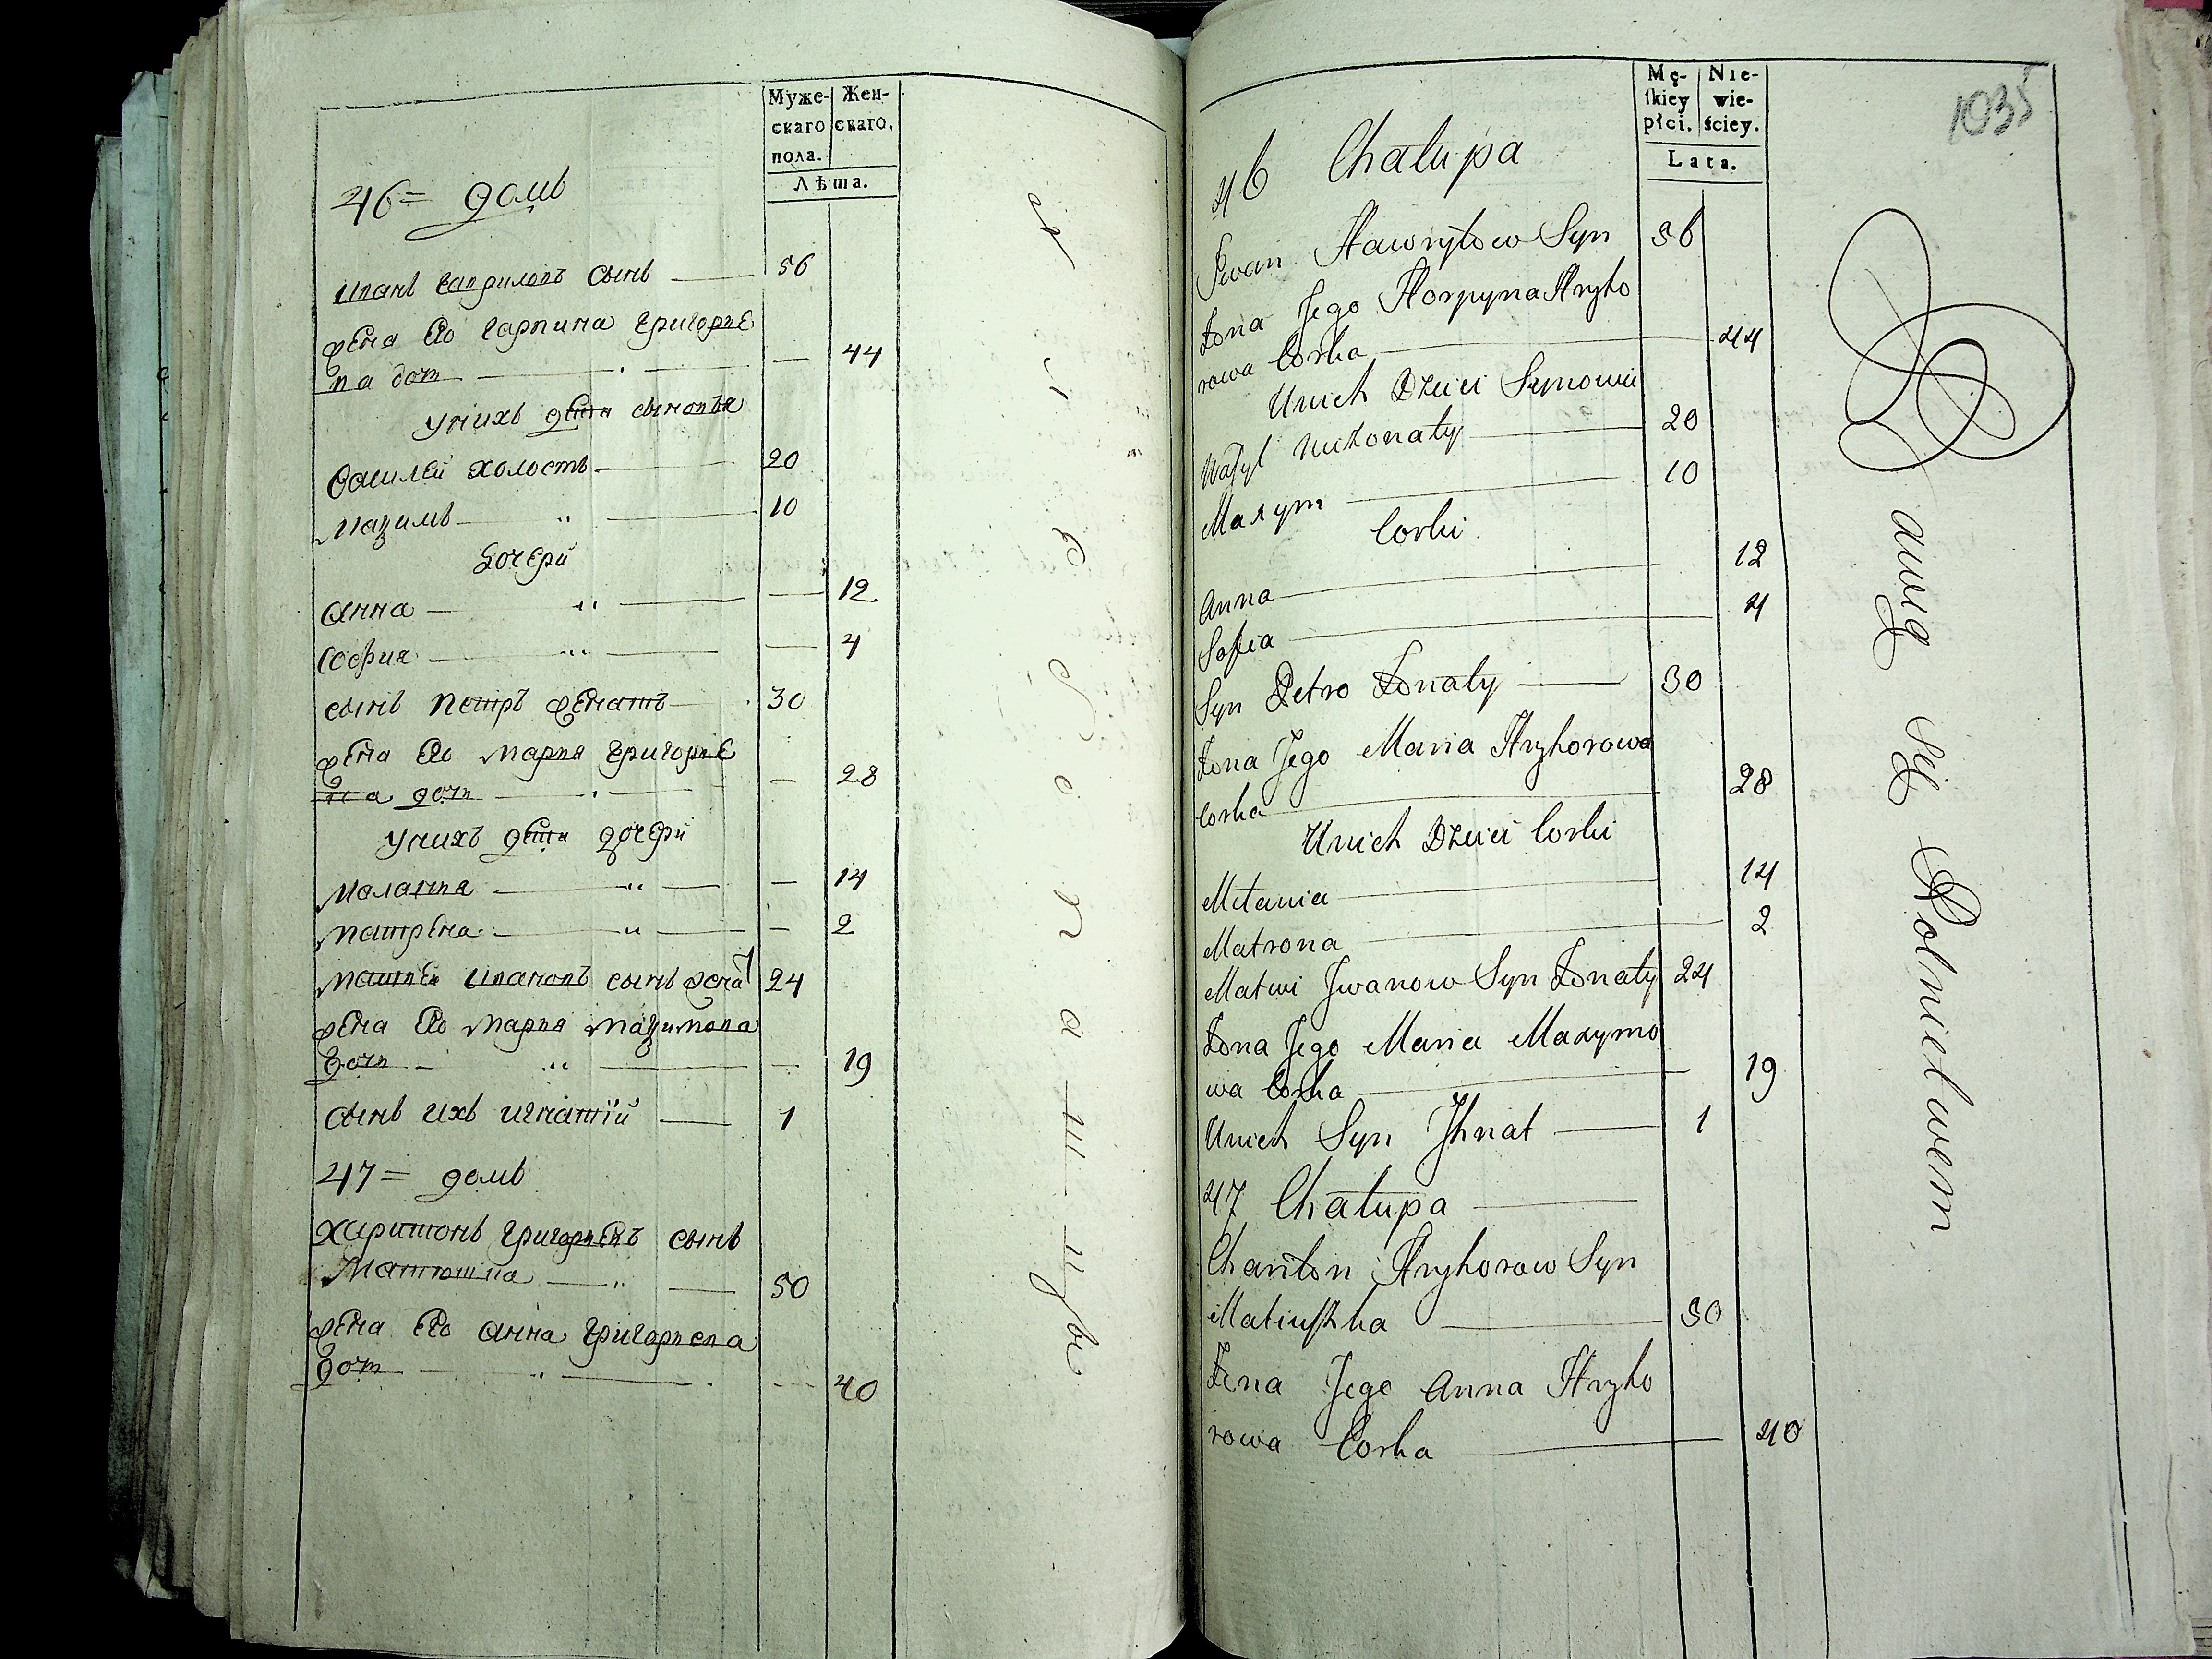 Муже-
скаго
пола.
Жен-
скаго.
Лѣта.
46= домъ
Иванъ Гаврiловъ сынъ 56
жена Его Гарпина Григорье
ва доч 44
У нихъ дети сыновья
Василей холостъ 20
Мазимъ 10
Дочери
Анна 12
София 4
сынъ Петръ женатъ 30
жена Его Марья Григорье
ва доч 28
У нихъ дети дочери
Маланья 14
Матрена 2
Матвей Ивановъ сынъ жена 24
жена Его Марья Мазимова
доч 19
сынъ ихъ Игнатiй 1
47= домъ
Харитонъ Григорьевъ сынъ
Матюшка 50
жена Его Анна Григорьева
доч 40
1035
Mę-
skiey
płci.
Nie-
wie-
ściey.
Lata.
46 Chałupa
Iwan Hawryłow Syn 56
Żona Jego Horpyna Hryho
rowa Corka 44
Unich Dzieci Synowie
Wasyl nieżonaty 20
Maxym 10
Corki
Anna 12
Sofia 4
Syn Petro Żonaty 30
Żona Jego Maria Hryhorowa
Corka 28
Unich Dzieci Corki
Mełania 14
Matrona 2
Matwi Jwanow Syn Żonaty 24
Żona Jego Maria Maxymo
wa Corka 19
Unich Syn Jhnat 1
47 Chałupa
Chariton Hryhorow Syn
Matiuszka 50
Żona Jego Anna Hryho
rowa Corka 40
Bawią Się Rolnictwem